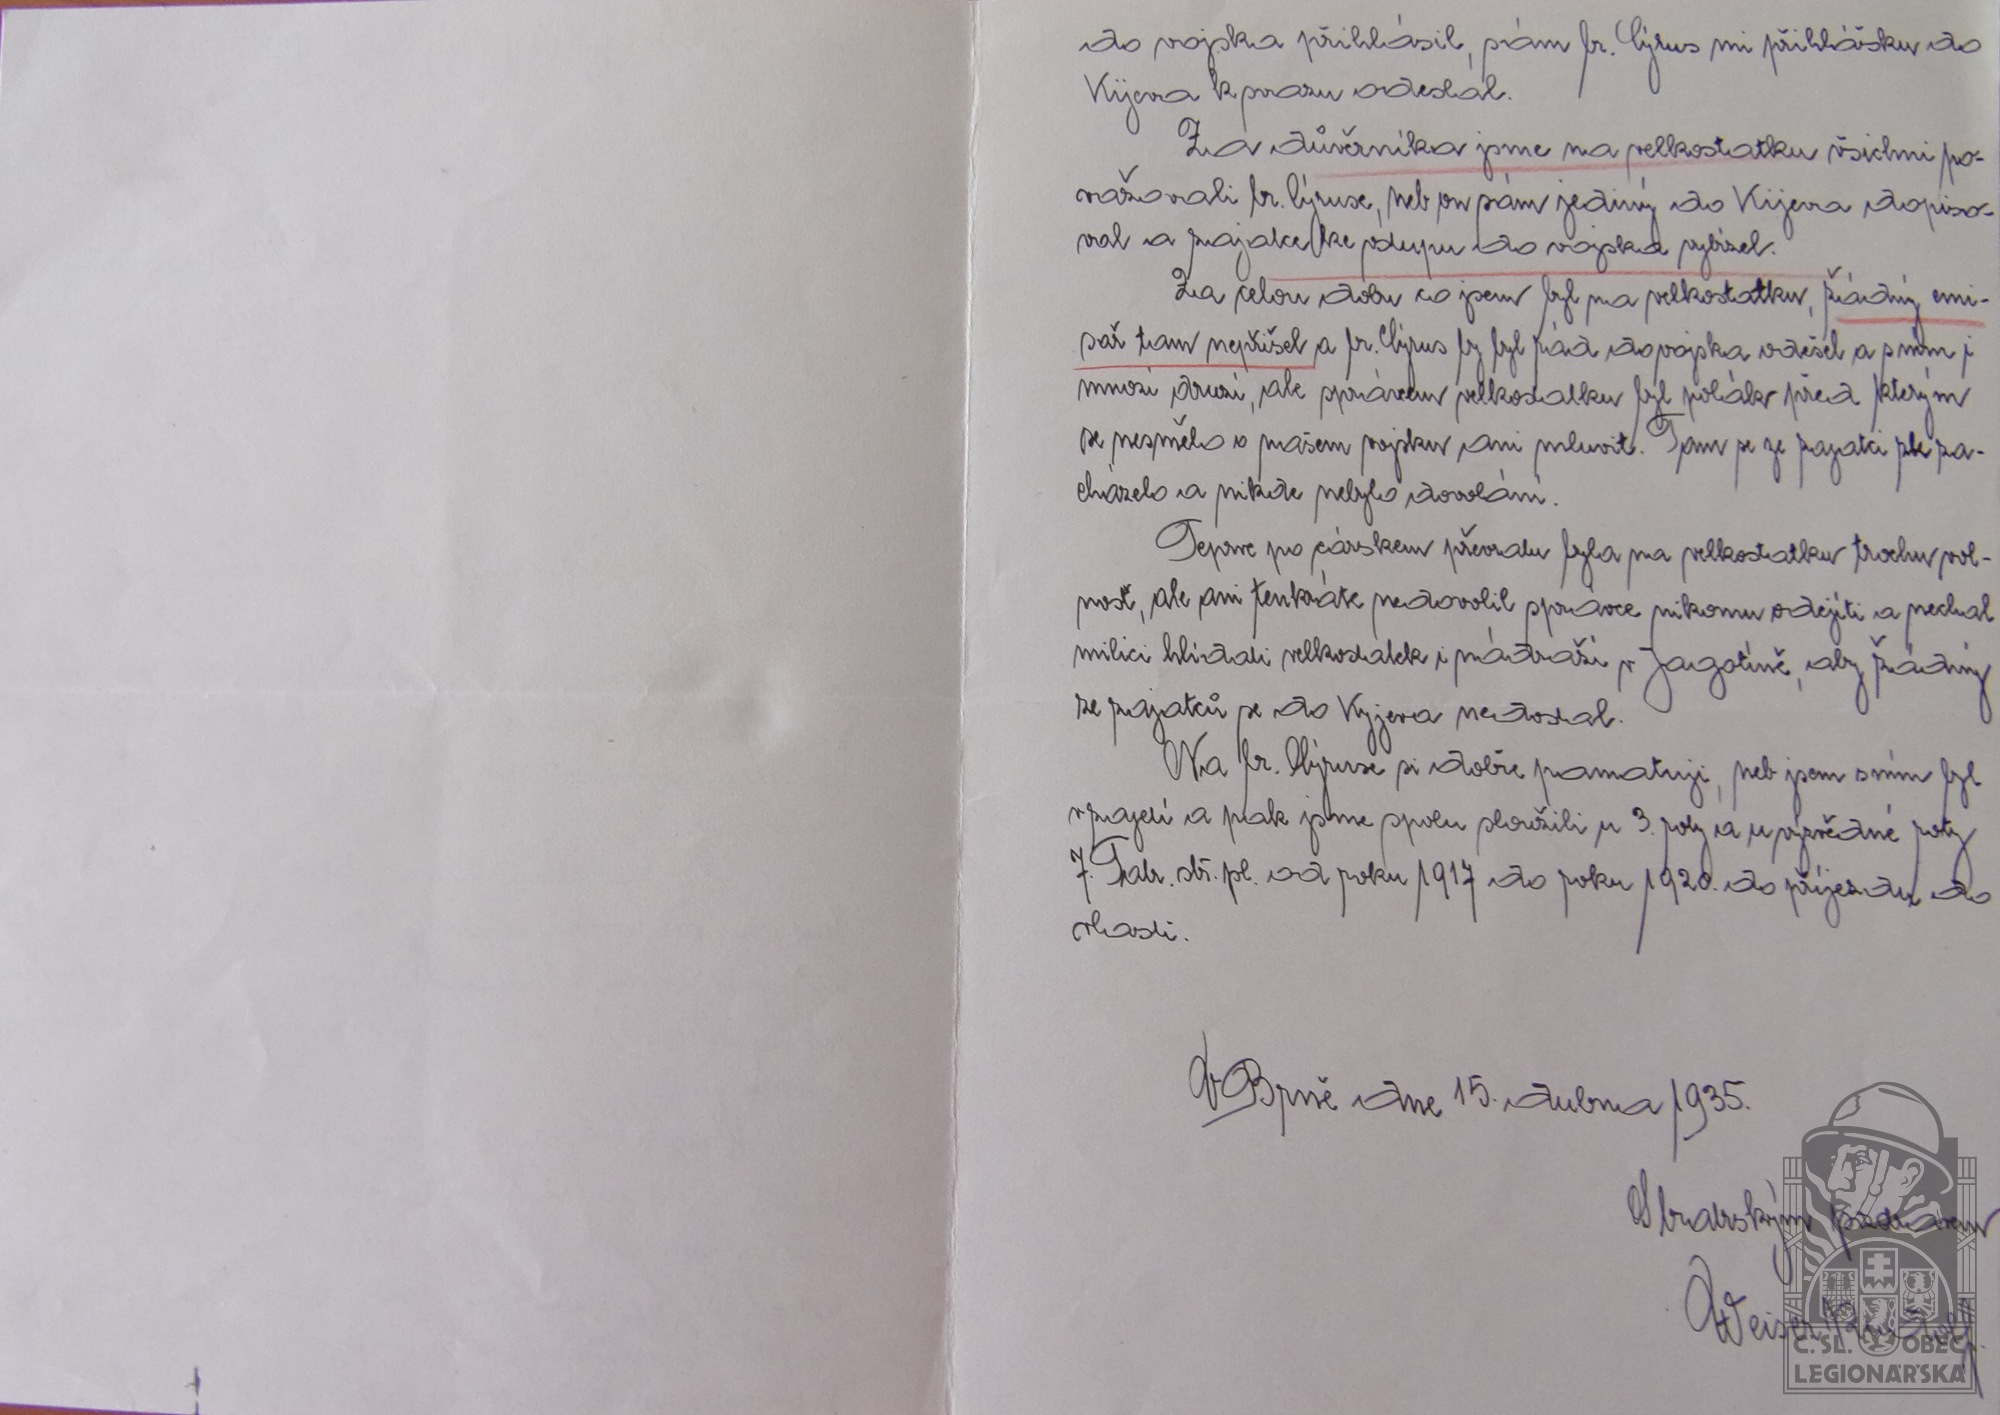 do vojska přihlásil, sám br. Cýrus mi přihlášku do
Kijeva k svazu odeslal.
Za důvěrníka jsme na velkostatku všichni po-
važovali br. Cýruse, neb on sám jediný do Kijeva dopiso-
val a zajatce ke vstupu do vojska vybízel.
Za celou dobu co jsem byl na velkostatku, žádný emi-
sař tam nepřišel a br. Cýrus by byl rád do vojska odešel a s ním i
mnozí druzí, ale správcem velkostatku byl polák před kterým
se nesmělo o našem vojsku ani mluvit. Tam se ze zajatci zle za-
cházelo a nikde nebylo dovolání.
Teprve po cárském převratu byla na velkostatku trochu vol-
nost, ale ani tenkráte nedovolil správce nikomu odejíti a nechal
milici hlídati velkostatek i nádraží v Jagotíně, aby žádný
ze zajatců se do Kyjeva nedostal.
Na br. Cýruse si dobře pamatuji, neb jsem s ním byl
v zajetí a pak jsme spolu sloužili u 3. roty a u výzvědné roty
7. Tatr. stř. pl. od roku 1917 do roku 1920. do příjezdu do
vlasti.
V Brně dne 15. dubna 1935.
S bratrským pozdravem
Weiser Rudolf
Č. SL. OBEC
LEGIONÁŘSKÁ